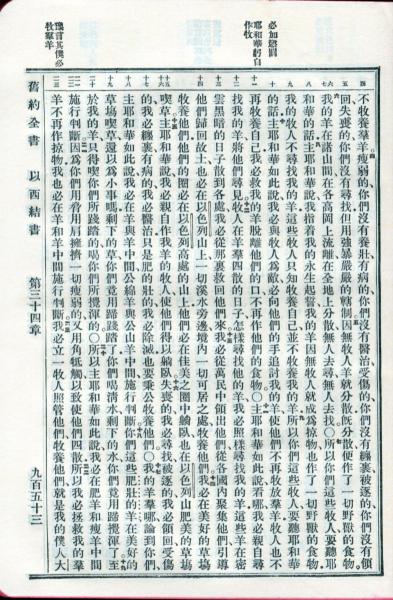 必加懲罰
耶和華將自
作牧
豫言其僕必
牧羣羊
不牧養羣羊瘦弱的你們沒有養壯有病的你們沒有醫治受傷的你們沒有纏裹被逐的你們沒有領
回失喪的你們沒有尋找但用強暴嚴嚴的轄制因無牧人羊就分散旣分散便作了一切野獸的食物
我的羊在諸山間在各高岡上流離在全地上分散無人去尋無人去找〇所以你們這些牧人要聽耶
和華的話主耶和華說我指着我的永生起誓我的羊因無牧人就成爲掠物也作了一切野獸的食物
我的牧人不尋找我的羊這些牧人只知牧養自己並不牧養我的羊所以你們這些牧人要聽耶和華
的話主耶和華如此說我必與牧人爲敵必向他們的手追討我的羊使他們不再牧放羣羊牧人也不
再牧養自己我必救我的羊脫離他們的口不再作他們的食物〇主耶和華如此說看哪我必親自尋
找我的羊將他們尋見牧人在羊羣四散的日子怎樣尋找他的羊我必照樣尋找我的羊這些羊在密
雲黑暗的日子散到各處我必從那裏救回他們來我必從萬民中領出他們從各國內聚集他們引導
他們歸回故土也必在以色列山上一切溪水旁邊境內一切可居之處牧養他們我必在美好的草塲
牧養他們他們的圈必在以色列高處的山上他們必在佳美之圈中躺臥也在以色列山肥美的草塲
喫草主耶和華說我必親自作我羊的牧人使他們得以躺臥失喪的我必尋找被逐的我必領回受傷
的我必纏裹有病的我必醫治只是肥的壯的我必除滅也要秉公牧養他們〇我的羊羣哪論到你們
主耶和華如此說我必在羊與羊中間公綿羊與公山羊中間施行判斷你們這些肥壯的羊在美好的
草塲喫草還以爲小事麼剩下的草你們竟用蹄踐踏了你們喝清水剩下的水你們竟用蹄攪渾了至
於我的羊只得喫你們所踐踏的喝你們所攪渾的〇所以主耶和華如此說我必在肥羊和瘦羊中間
施行判斷因爲你們用脅用肩擁擠一切瘦弱的又用角牴觸以致使他們四散所以我必拯救我的羣
羊不再作掠物我也必在羊和羊中間施行判斷我必立一牧人照管他們牧養他們就是我的僕人大
舊約全書 以西結書 第三十四章 九百五十三